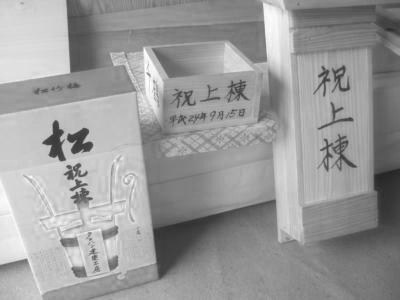 松竹梅
松
祝上棟
祝上棟
平成24年9月15日
祝上棟